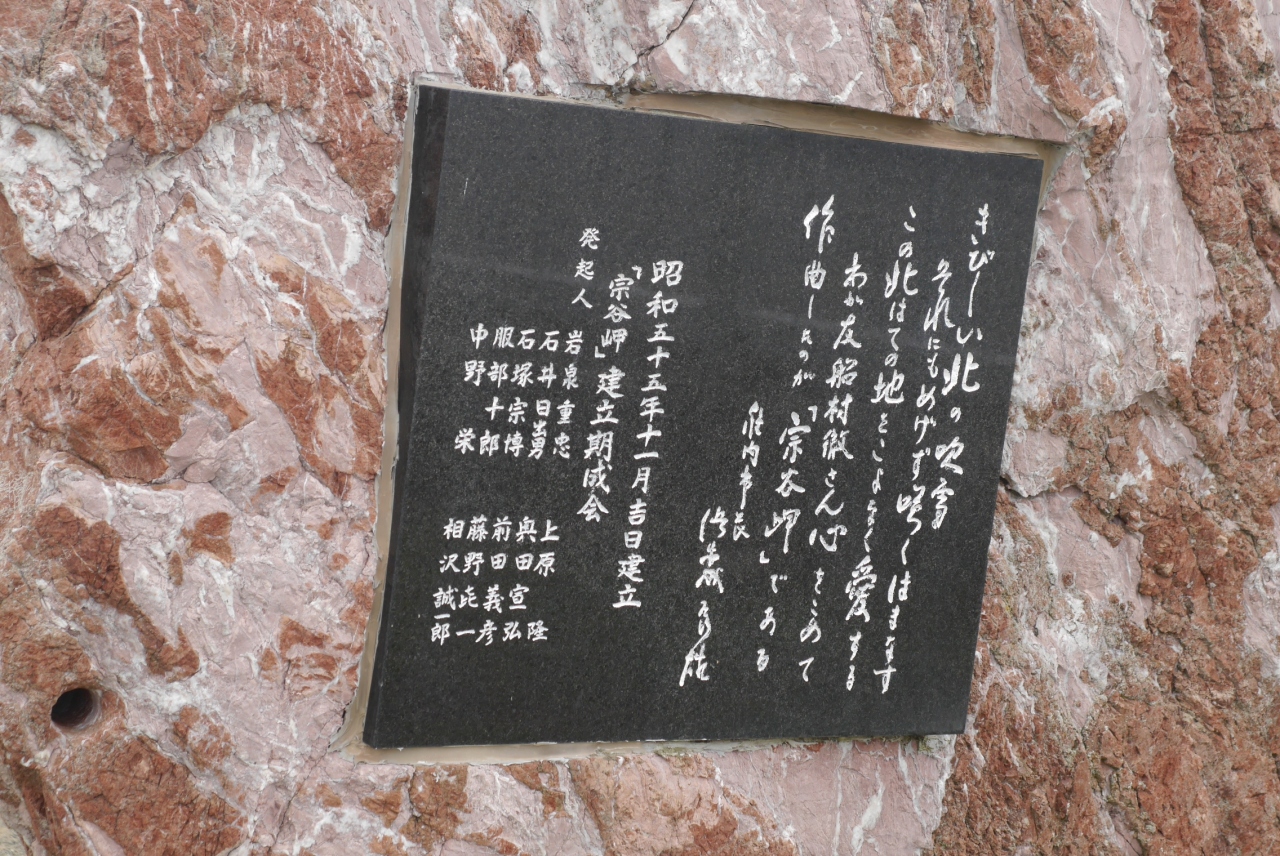 きびしい北の吹雪
それにもめげず咲くはまなす
この北はての地をこよなく愛する
わが友船村徹さん心をこめて
作曲したのが「宗谷岬」である
稚内市長
浜森辰雄
昭和五十五年十一月吉日建立
「宗谷岬」建立期成会
発起人
岩泉重忠
石井日出勇
石塚宗博
服部十郎
中野栄
上原隆
奥田宣弘
前田義彦
藤野一
相沢誠一郎